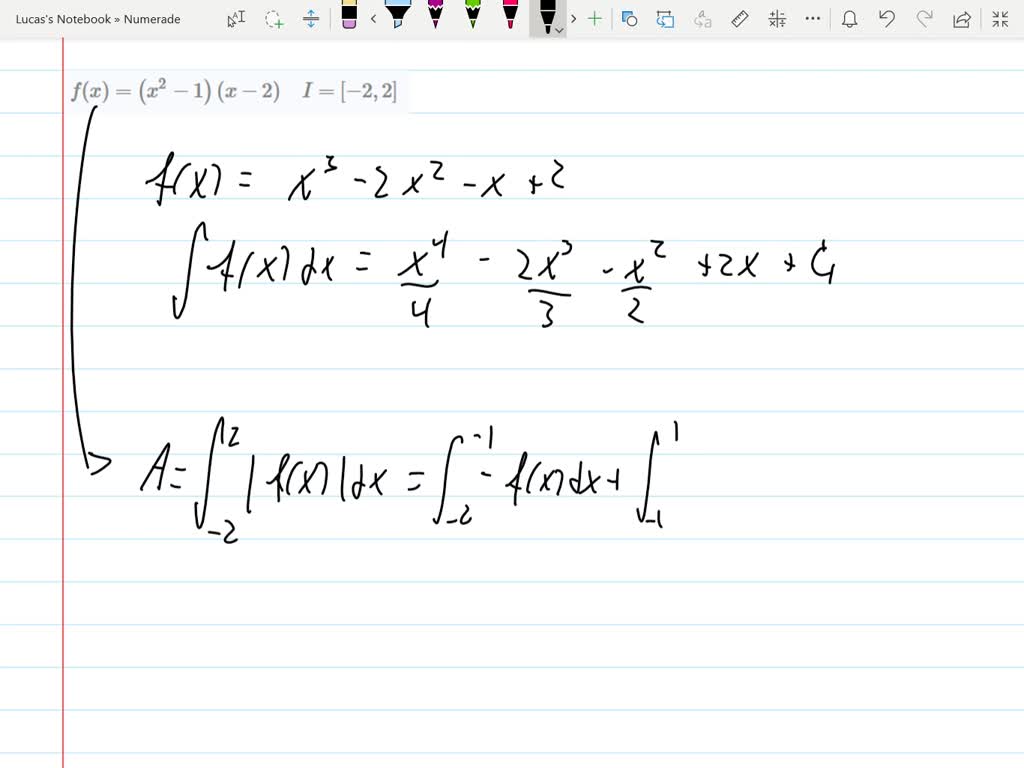 Lucas's Notebook » Numerade
f(x) = (x² − 1) (x − 2) I = [−2, 2]
f(x) = x³ - 2x² - x + 2
∫ f(x) dx = x⁴/4 - 2x³/3 - x²/2 + 2x + C₁
A = ∫₋₂² |f(x)| dx = ∫₋₂⁻¹ - f(x) dx + ∫₋₁¹